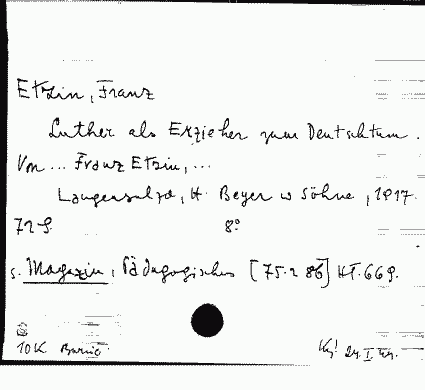 Etzin, Franz
Luther als Erzieher zum Deutschtum.
Von ... Franz Etzin, ...
Langensalza, H. Beyer u Söhne, 1917.
72 S. 8°
s. Magazin, Pädagogisches [75.286] Hft. 669.
10K